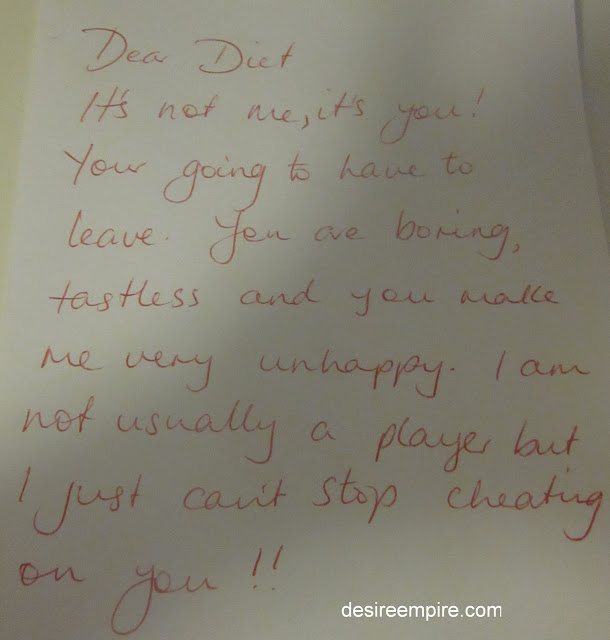 Dear Diet
It's not me, it's you!
Your going to have to
leave. You are boring,
tastless and you make
me very unhappy. I am
not usually a player but
I just can't stop cheating
on you!!
desireempire.com